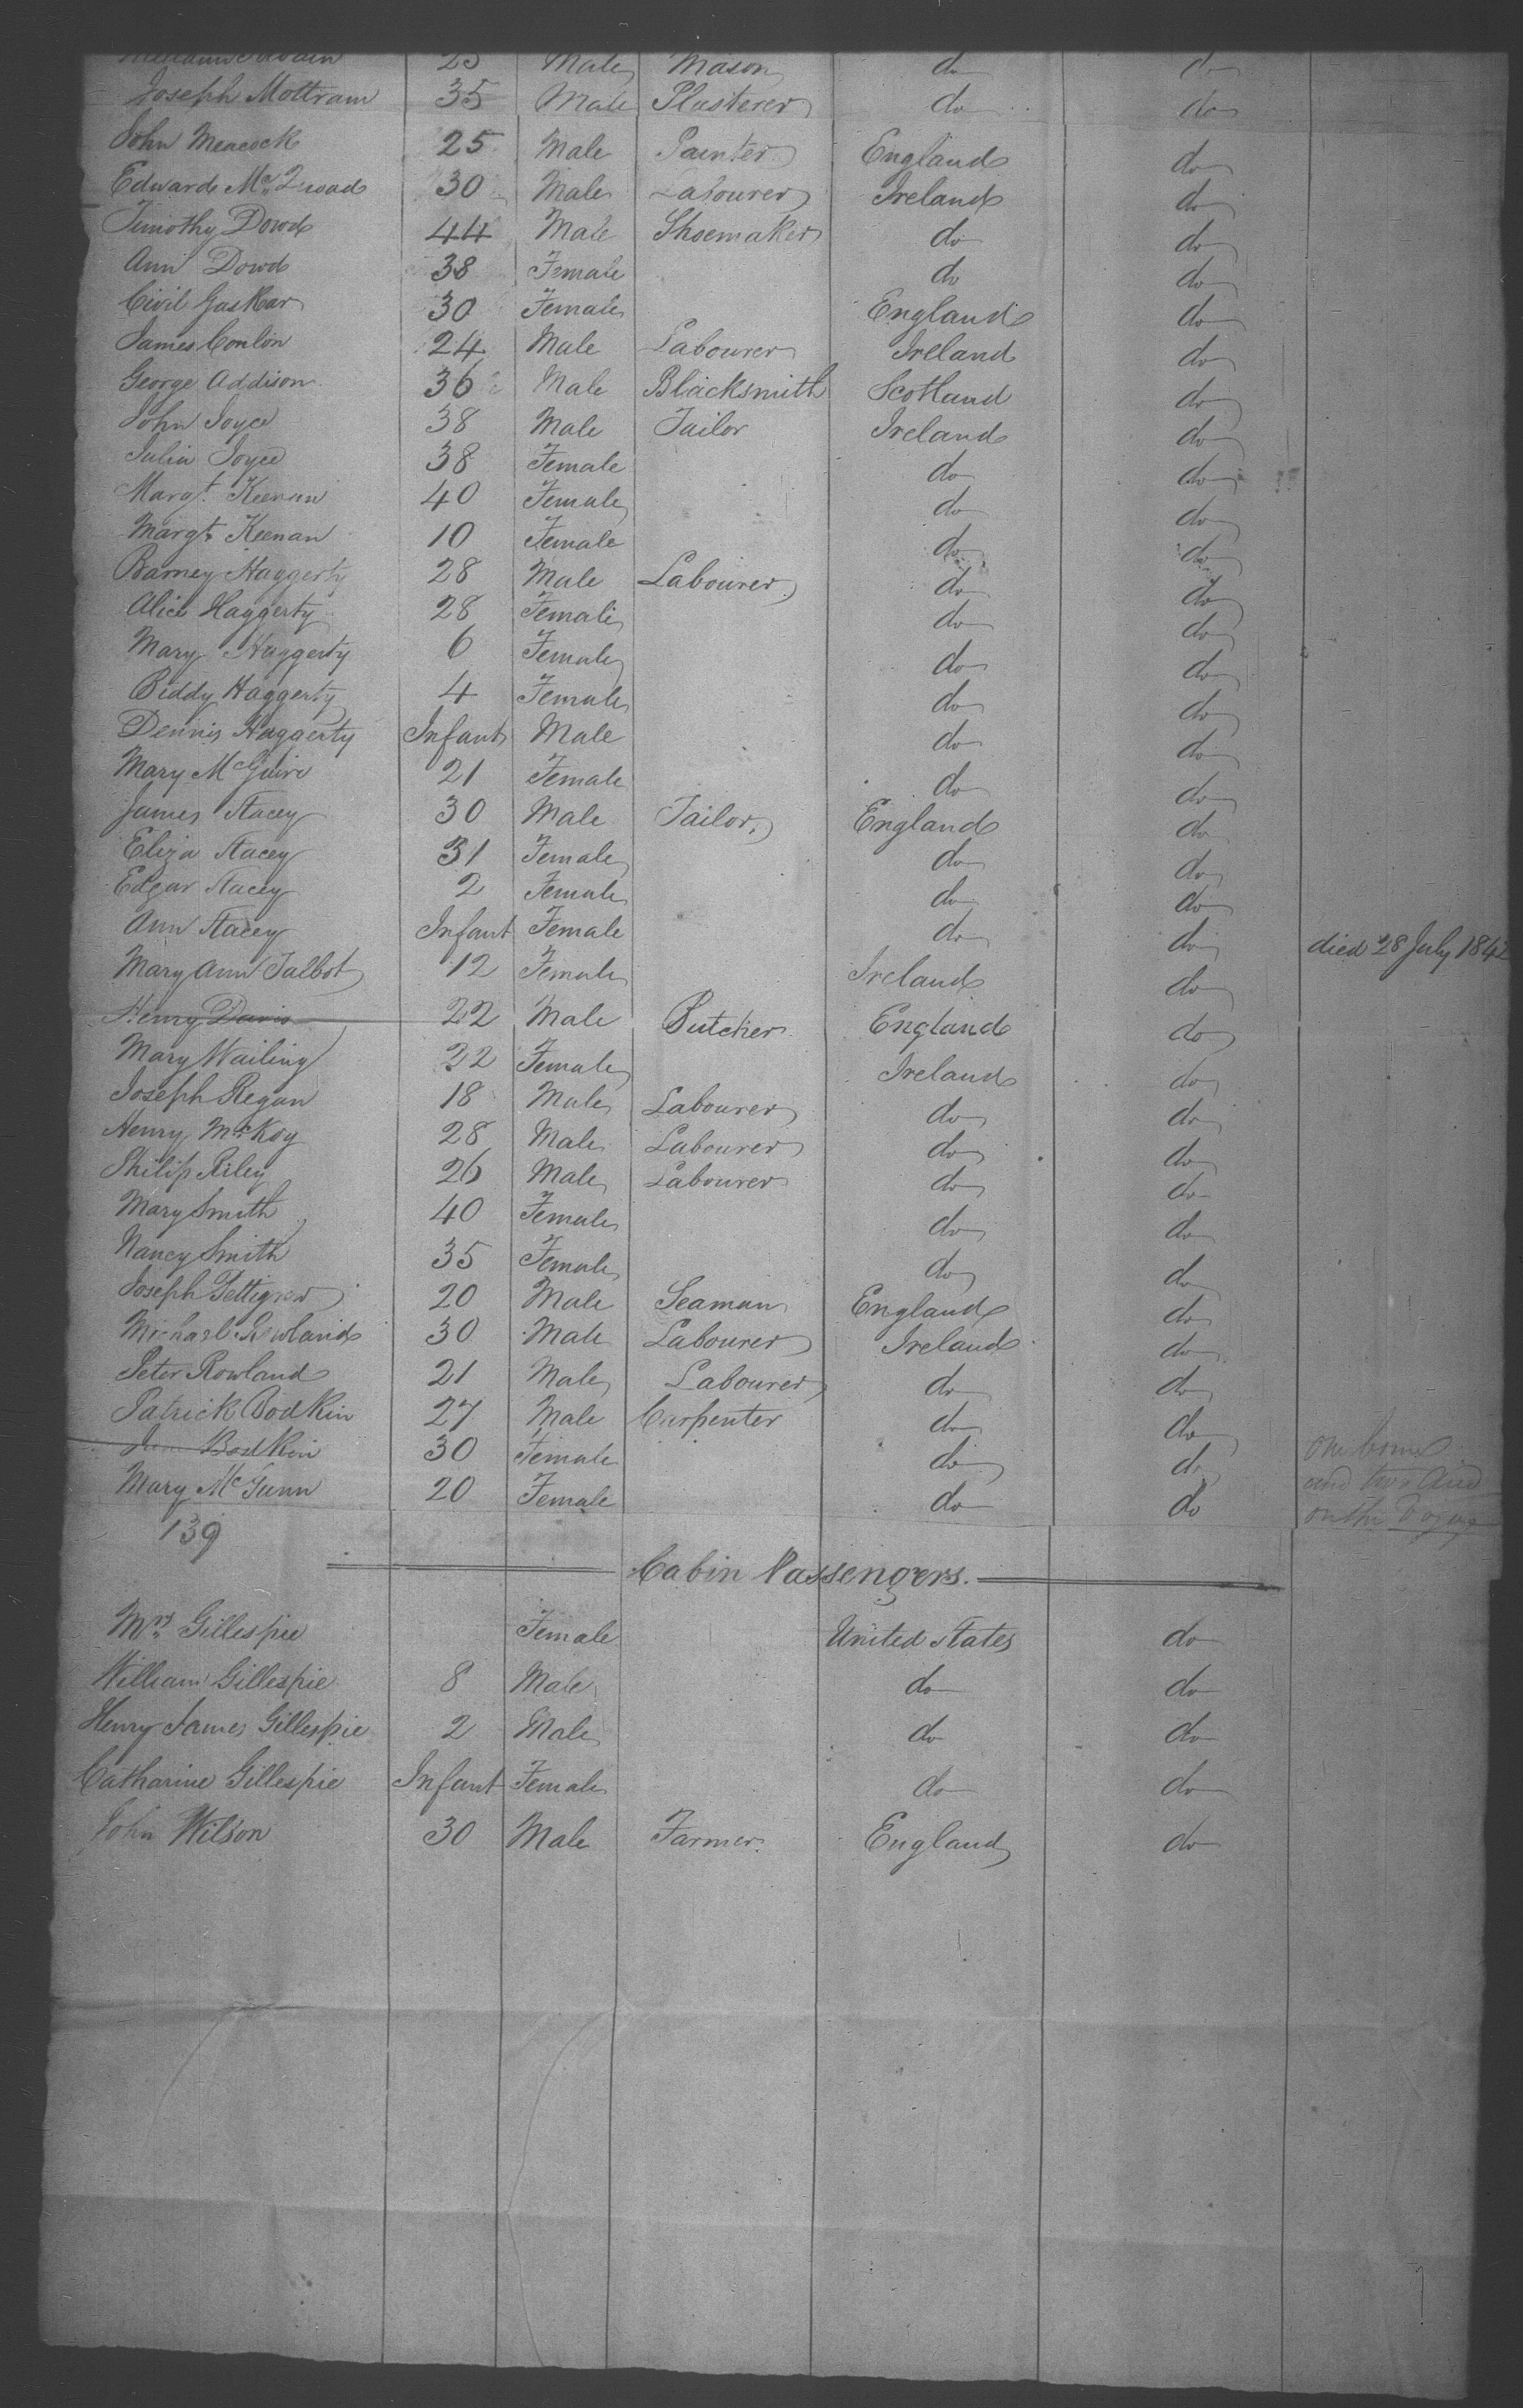 25 Male Mason do do
Joseph Mottram 35 Male Plasterer do do
John Meacock 25 Male Painter England do
Edward Mc Quoad 30 Male Labourer Ireland do
Timothy Dowd 44 Male Shoemaker do do
Ann Dowd 38 Female do do
Civil Gaskar 30 Female England do
James Conlon 24 Male Labourer Ireland do
George Addison 36 Male Blacksmith Scotland do
John Joyce 38 Male Tailor Ireland do
Julia Joyce 38 Female do do
Margt. Keenan 40 Female do do
Margt. Keenan 10 Female do do
Barney Haggerty 28 Male Labourer do do
Alice Haggerty 28 Female do do
Mary Haggerty 6 Female do do
Biddy Haggerty 4 Female do do
Dennis Haggerty Infant Male do do
Mary McGuire 21 Female do do
James Stacey 30 Male Tailor England do
Eliza Stacey 31 Female do do
Edgar Stacey 2 Female do do
Ann Stacey Infant Female do do died 28 July 1842
Mary Ann Talbot 12 Female Ireland do
Henry Davis 22 Male Butcher England do
Mary Wailing 22 Female Ireland do
Joseph Regan 18 Male Labourer do do
Henry McKoy 28 Male Labourer do do
Philip Riley 26 Male Labourer do do
Mary Smith 40 Female do do
Nancy Smith 35 Female do do
Joseph Pettigrew 20 Male Seaman England do
Michael Rowland 30 Male Labourer Ireland do
Peter Rowland 21 Male Labourer do do
Patrick Bodkin 27 Male Carpenter do do
Bodkin 30 Female do do one born
Mary McGunn 20 Female do do and two died
139 on the Voyage
Cabin Passengers.
Mrs Gillespie Female United States do
William Gillespie 8 Male do do
Henry James Gillespie 2 Male do do
Catharine Gillespie Infant Female do do
John Wilson 30 Male Farmer England do